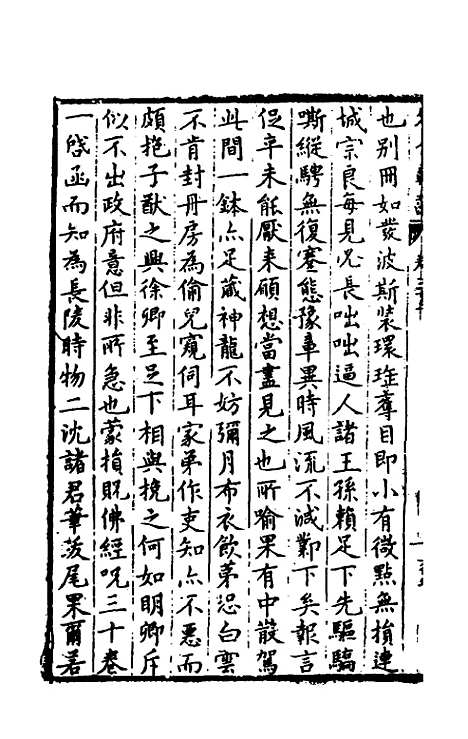 也別冊如發波斯裝環琟奪目即小有微點無損連
城宗良每見必長咄咄逼人諸王孫賴足下先驅驕
嘶縱騁無復蹇態豫章異時風流不減鄴下矣報言
促卒未能厭来願想當盡見之也所喻果有中散駕
此間一鉢亦足藏神龍不妨彌月布衣飲苐恐白雲
不肯封丹房為偷兒窺伺耳家弟作吏知亦不惡而
頗抱子猷之興徐卿至足下相與挽之何如明卿斥
似不出政府意但非所急也蒙損貺佛經呪三十卷
一啓函而知為長陵時物二沈諸君筆茇尾果爾若